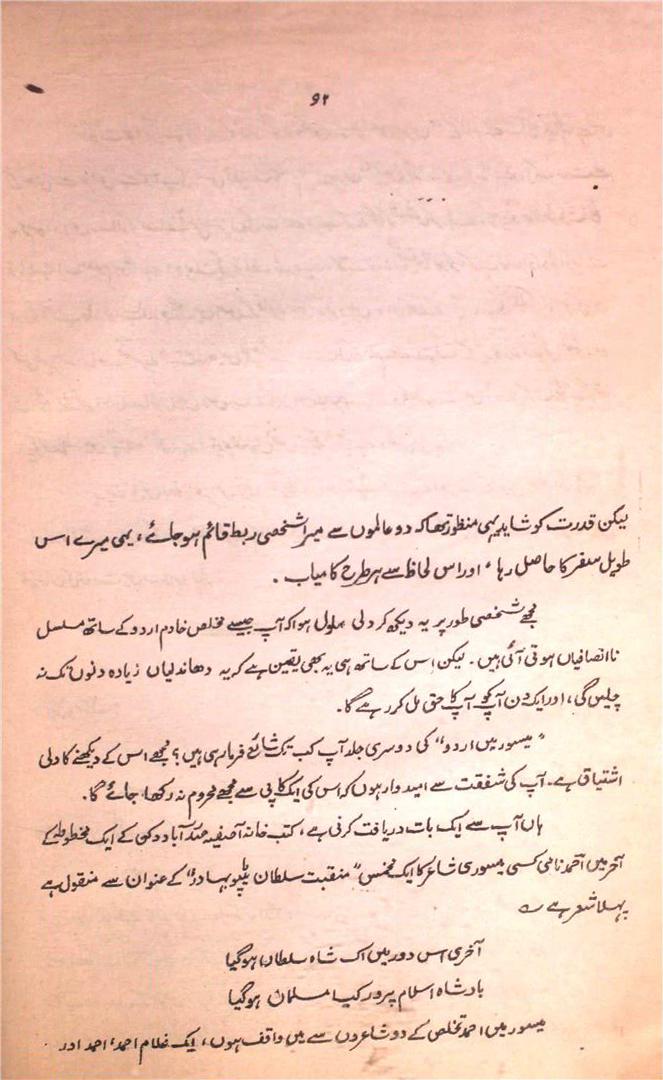 ۹۲
لیکن قدرت کو شاید یہی منظور تھا کہ دو عالموں سے میرا شخصی ربط قائم ہو جائے، یہی میرے اس
طویل سفر کا حاصل رہا، اور اس لحاظ سے ہر طرح کامیاب ۔
مجھے شخصی طور پر یہ دیکھ کر دلی ملول ہوا کہ آپ جیسے مخلص خادم اردو کے ساتھ مسلسل
نا انصافیاں ہوتی آئی ہیں ۔ لیکن اس کے ساتھ ہی یہ بھی یقین ہے کہ یہ دھاندلیاں زیادہ دنوں تک نہ
چلیں گی، اور ایک دن آپ کو آپ کا حق مل کر رہے گا۔
"میسور میں اردو" کی دوسری جلد آپ کب تک شائع فرما رہی ہیں؟ مجھے اس کے دیکھنے کا دلی
اشتیاق ہے۔ آپ کی شفقت سے امیدوار ہوں کہ اس کی ایک کاپی سے مجھے محروم نہ رکھا جائے گا۔
ہاں آپ سے ایک بات دریافت کرنی ہے، کتب خانہ آصفیہ حیدرآباد دکن کے ایک مخطوطے کے
آخر میں احمد نامی کسی میسوری شاعر کا ایک مخمس "منقبت سلطان ٹیپو بہادر" کے عنوان سے منقول ہے
پہلا شعر ہے ؎
آخری اس دور میں اک شاہ سلطاں ہو گیا
بادشاہ اسلام پرور کیا مسلماں ہو گیا
میسور میں احمد تخلص کے دو شاعروں سے میں واقف ہوں، ایک غلام احمد، احمد اور